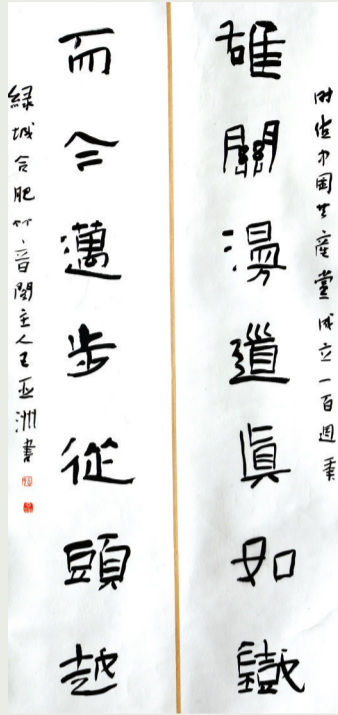 時值中國共產黨成立一百週年
雄關漫道眞如鐵
而今邁步從頭越
緑城合肥竹音閣主人王亞洲書